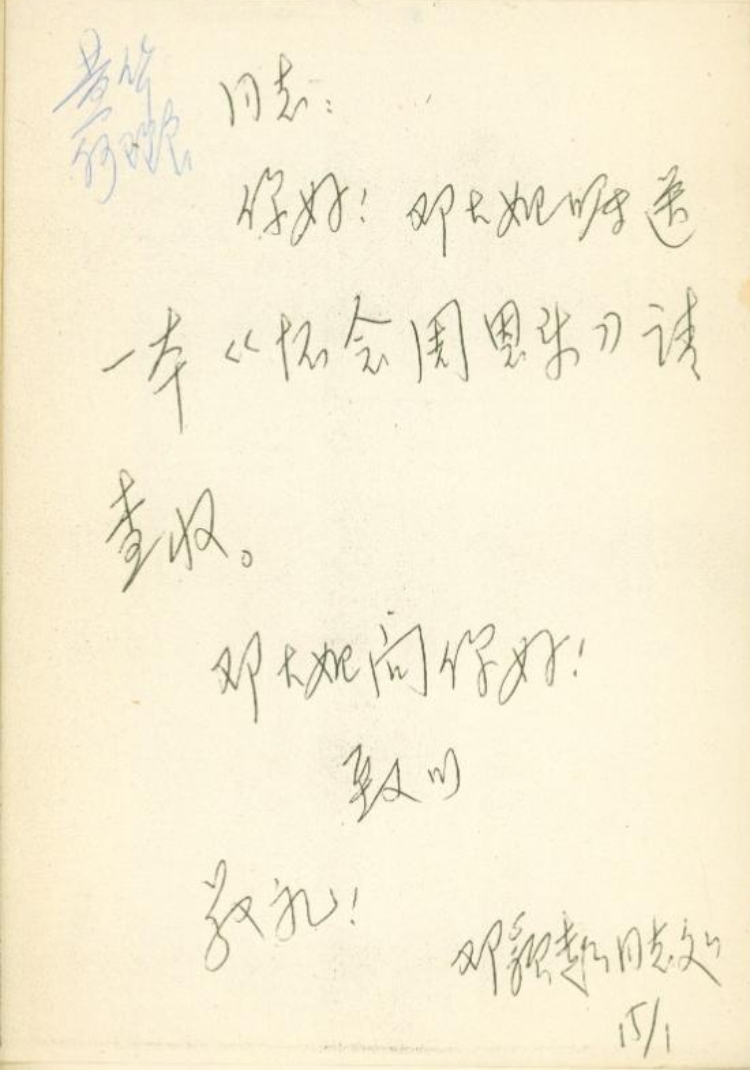 黄华
何理良 同志：
你好！邓大姐嘱送
一本《怀念周恩来》请
查收。
邓大姐问你好！
致以
敬礼！
邓颖超同志处
15/1